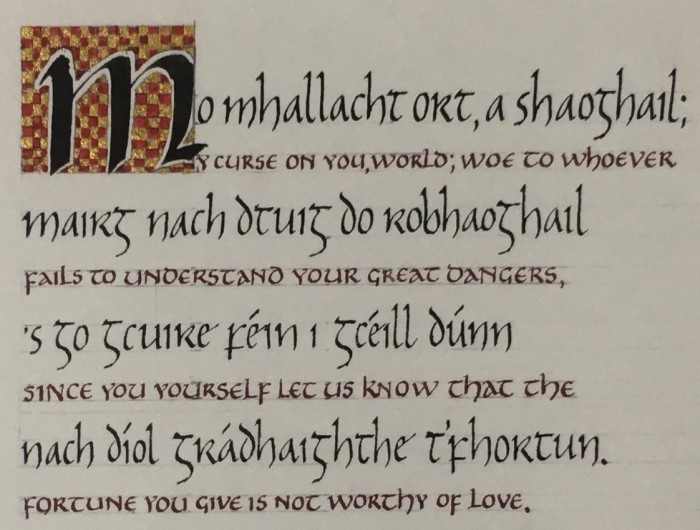 Mo mhallacht ort, a shaoghail;
My curse on you, world; woe to whoever
mairg nach dtuig do robhaoghail
fails to understand your great dangers,
's go gcuire féin i gcéill dúnn
since you yourself let us know that the
nach díol grádhaighthe t'fhortun.
fortune you give is not worthy of love.